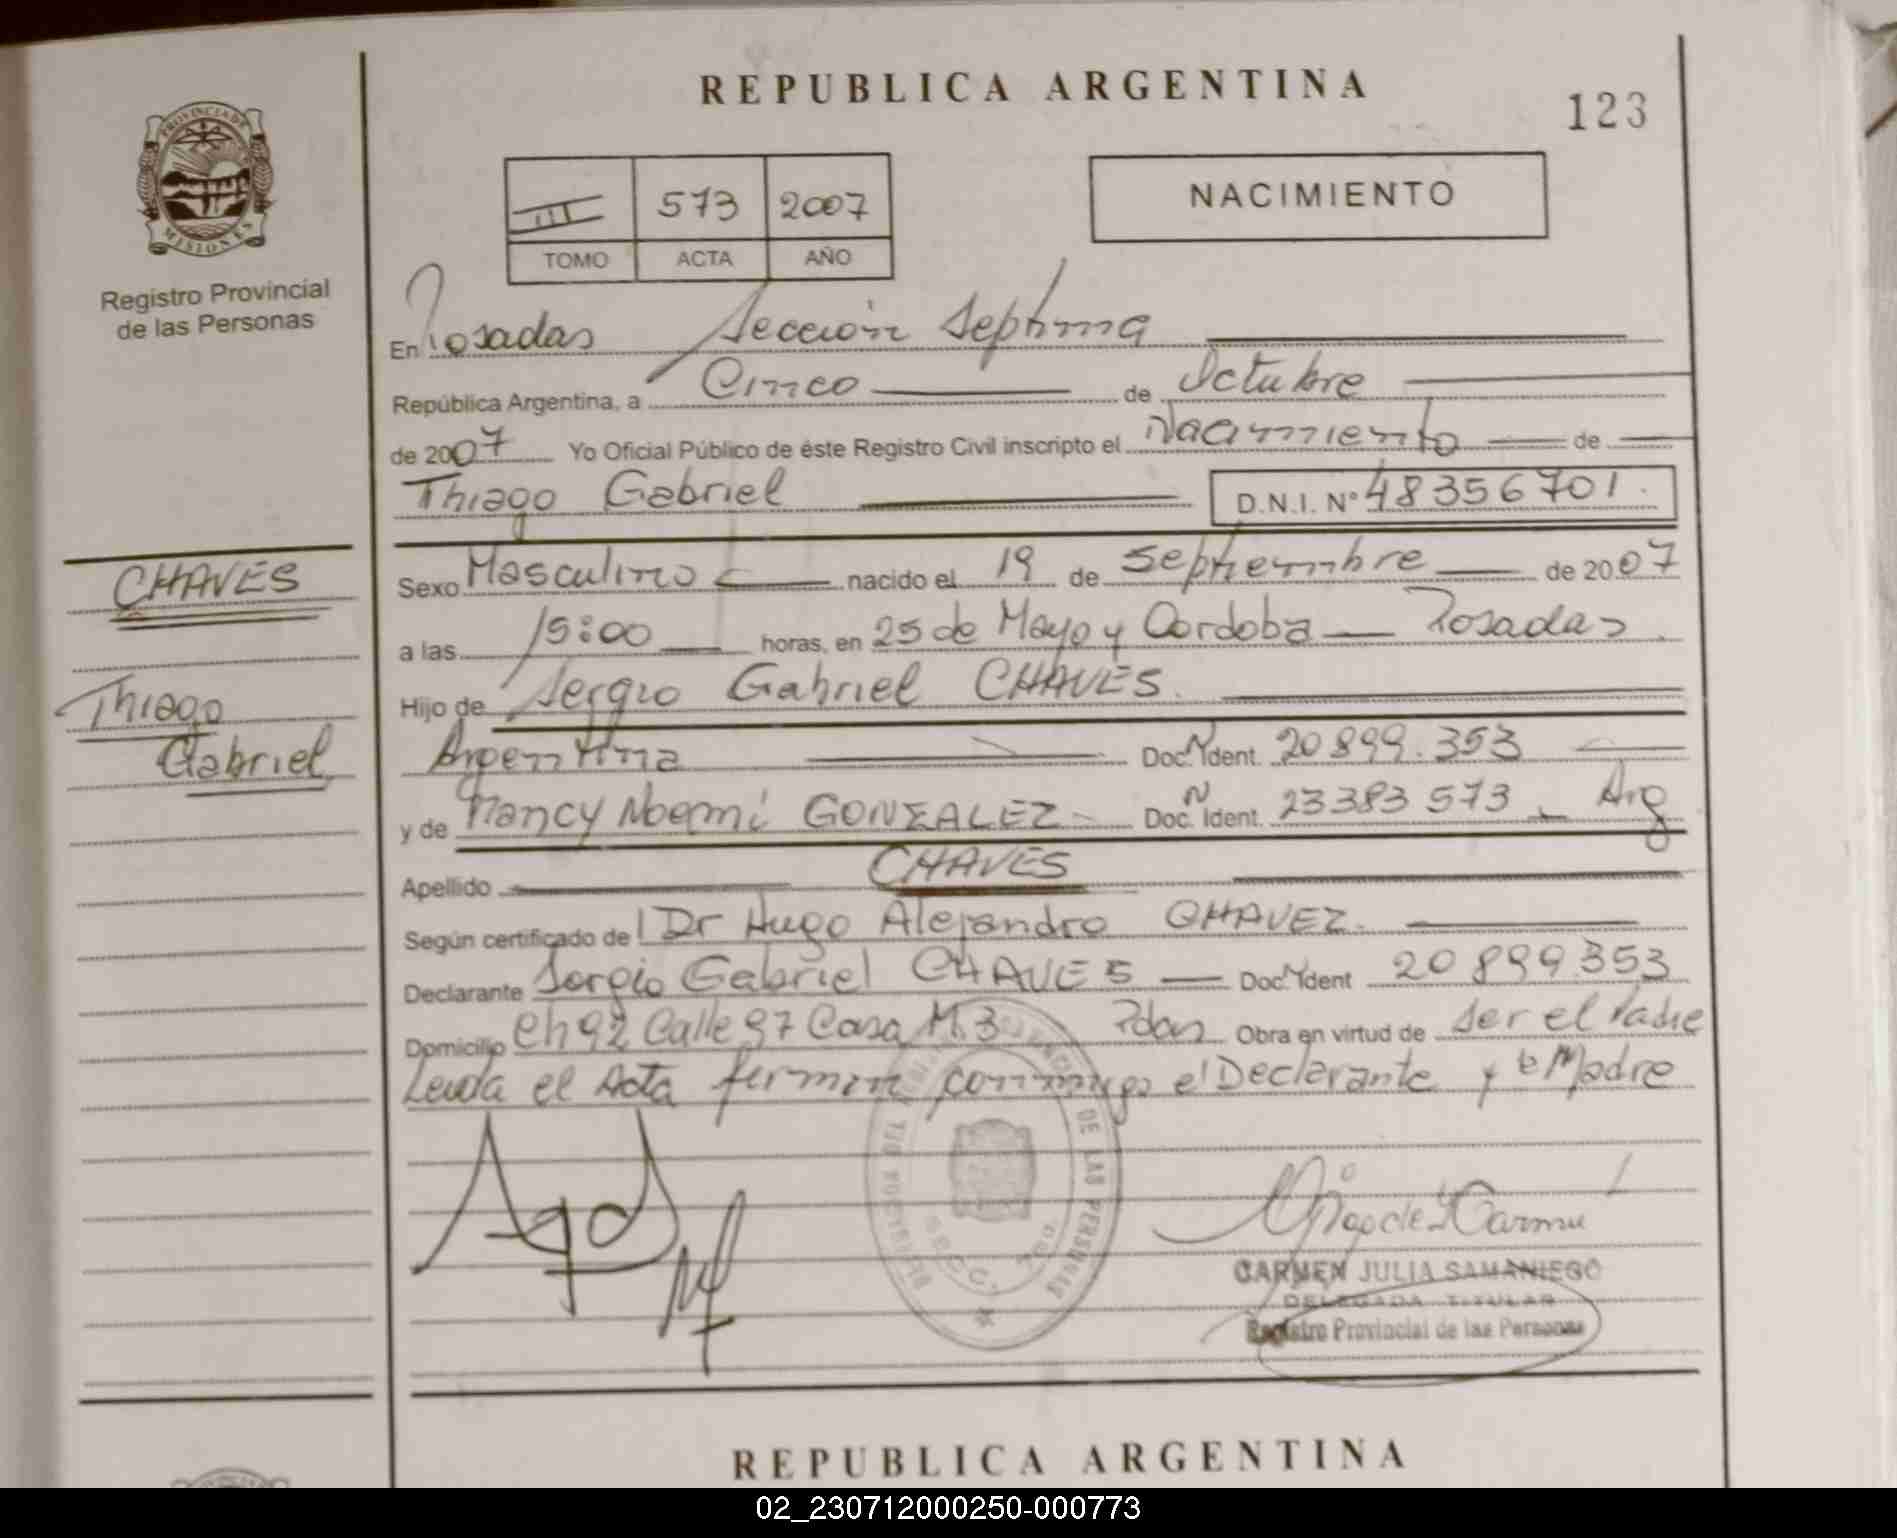 REPUBLICA ARGENTINA
123
PROVINCIA DE
MISIONES
Registro Provincial
de las Personas
III 573 2007
TOMO ACTA AÑO
NACIMIENTO
En Posadas Sección Septima
República Argentina, a Cinco de Octubre
de 2007 Yo Oficial Público de éste Registro Civil inscripto el Nacimiento de
Thiago Gabriel D.N.I. Nº 48356701.
CHAVES
Thiago
Gabriel
Sexo Masculino nacido el 19 de Septiembre de 2007
a las 15:00 horas, en 25 de Mayo y Cordoba Posadas
Hijo de Sergio Gabriel CHAVES.
Argentina Doc. N Ident. 20899.353
y de Nancy Noemi GONZALEZ Doc. N Ident. 23383573 Arg
Apellido CHAVES
Según certificado de Dr Hugo Alejandro CHAVEZ.
Declarante Sergio Gabriel CHAVES Doc. N Ident 20899.353
Domicilio Ch 92 Calle 97 Casa M.3 Pdas Obra en virtud de Ser el Padre
Leida el Acta firman conmigo el Declarante y la Madre
DE LAS PERSONAS
CARMEN JULIA SAMANIEGO
DELEGADA TITULAR
Registro Provincial de las Personas
REPUBLICA ARGENTINA
02_230712000250-000773